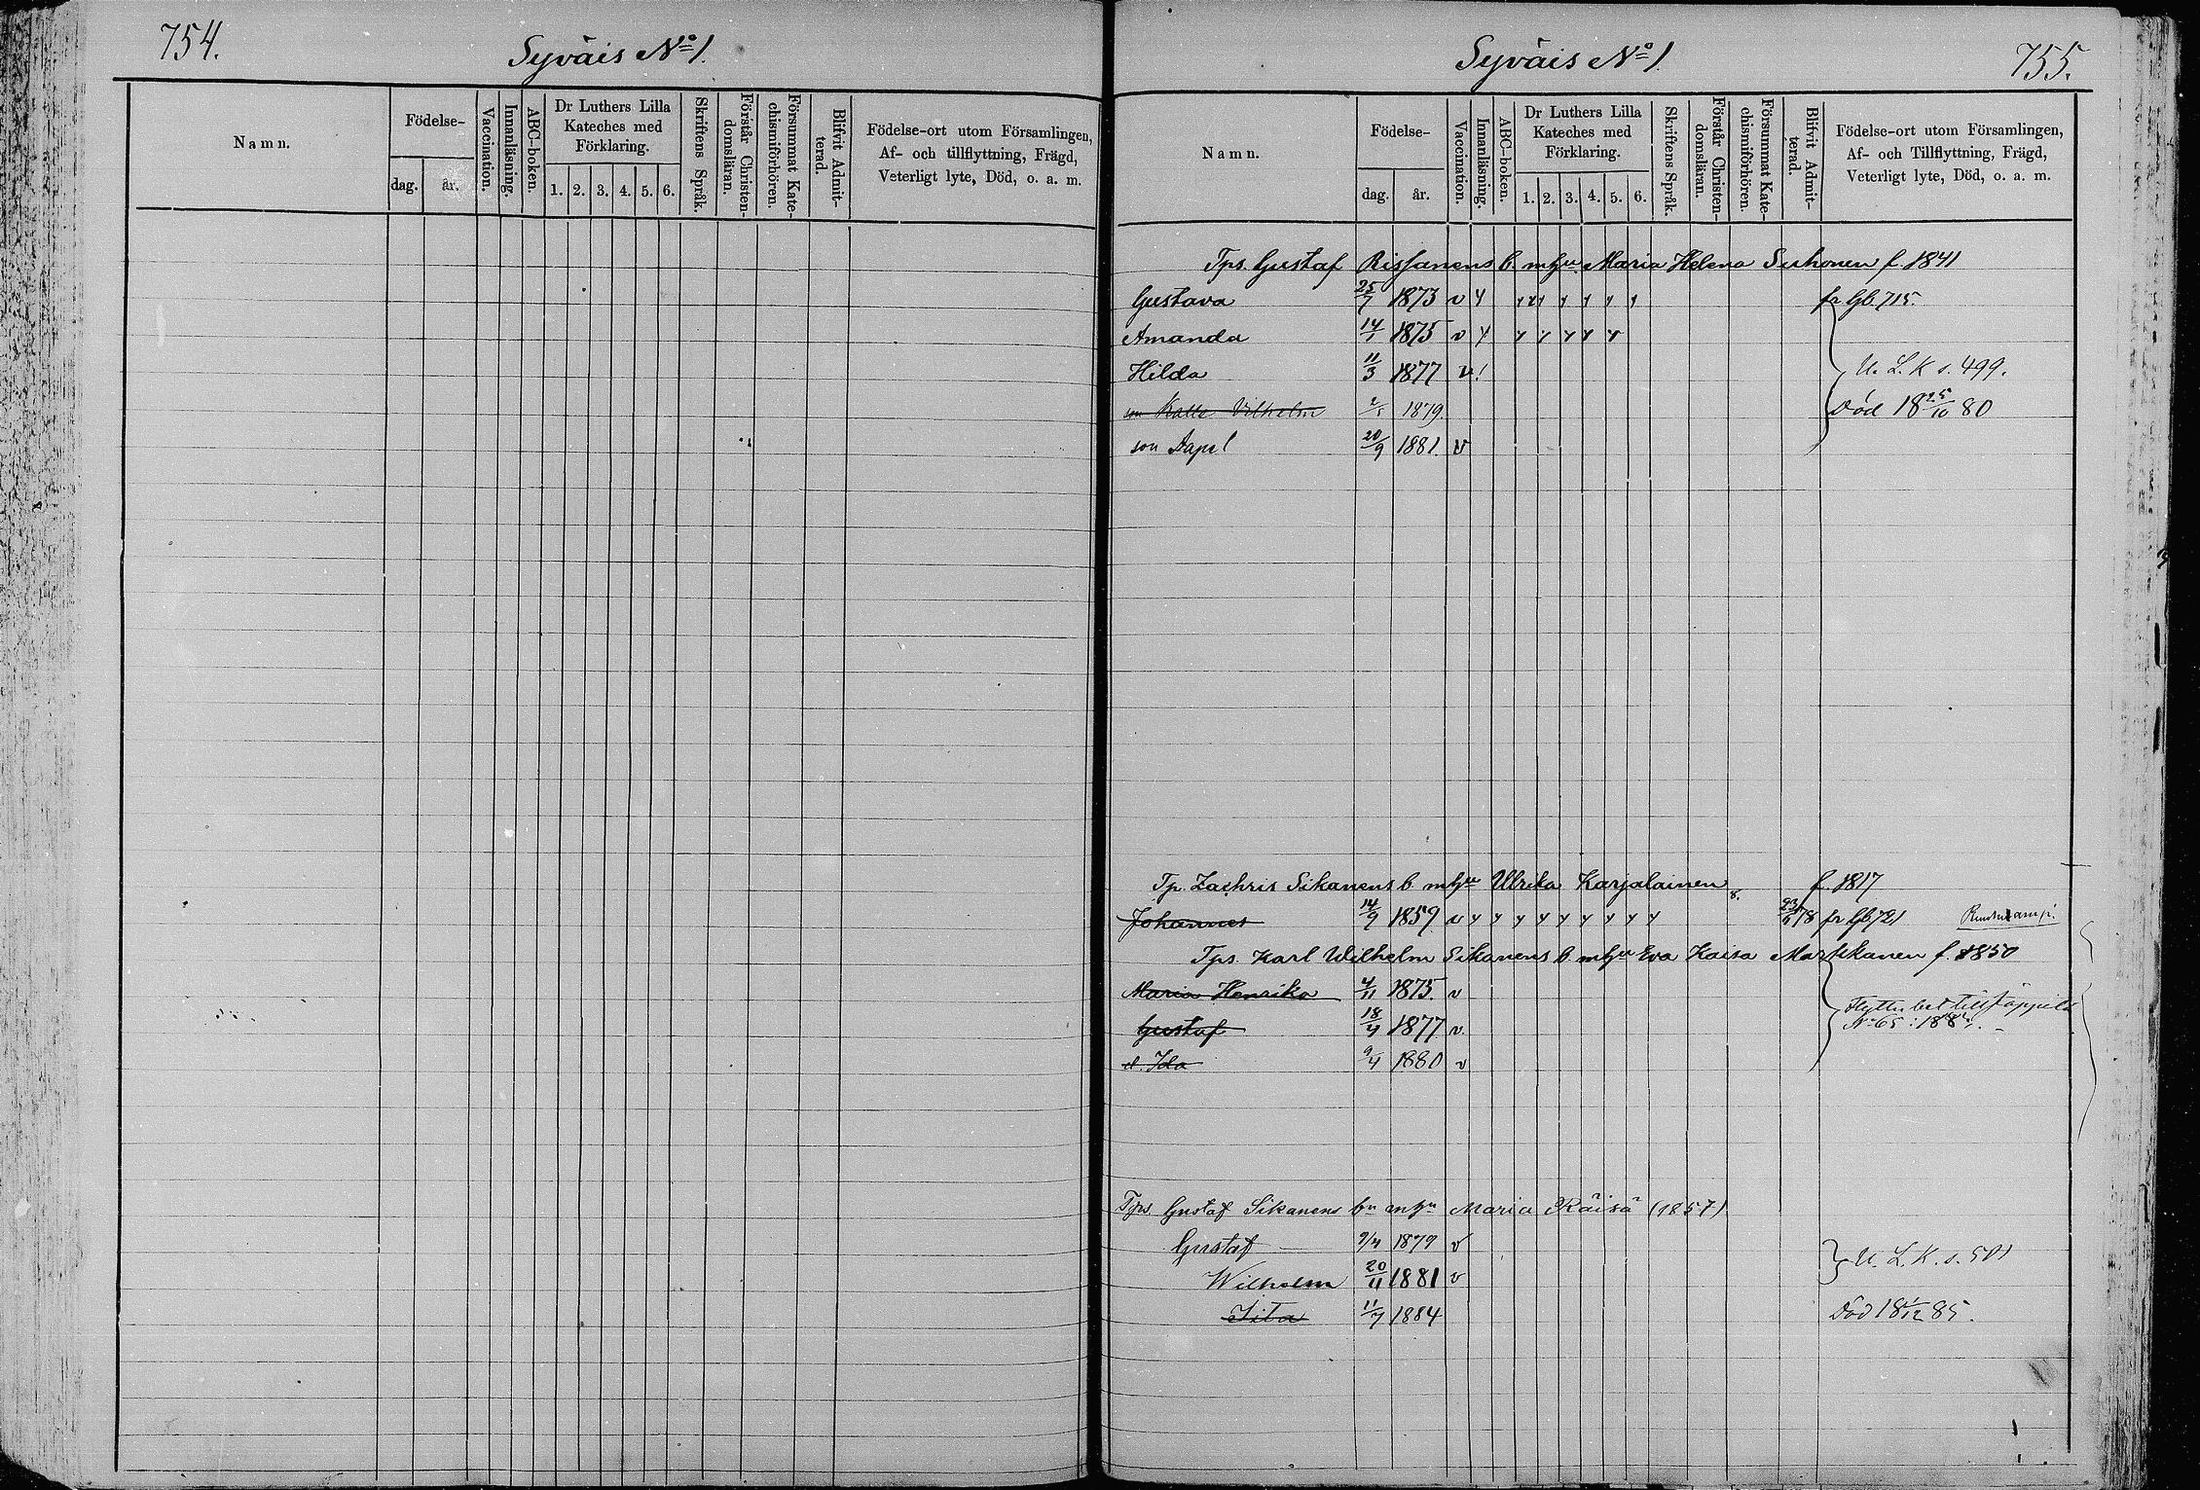 754.
Syväis No 1.
Namn.
Födelse-
dag.
år.
Vaccination.
Innanläsning.
ABC-boken.
Dr Luthers Lilla
Kateches med
Förklaring.
1. 2. 3. 4. 5. 6.
Skriftens Språk.
Förstår Christen-
domsläran.
Försummat Kate-
chismiförhören.
Blifvit Admit-
terad.
Födelse-ort utom Församlingen,
Af- och tillflyttning, Frägd,
Veterligt lyte, Död, o. a. m.
Syväis No 1.
755.
Namn.
Födelse-
dag.
år.
Vaccination.
Innanläsning.
ABC-boken.
Dr Luthers Lilla
Kateches med
Förklaring.
1. 2. 3. 4. 5. 6.
Skriftens Språk.
Förstår Christen-
domsläran.
Försummat Kate-
chismiförhören.
Blifvit Admit-
terad.
Födelse-ort utom Församlingen,
Af- och Tillflyttning, Frägd,
Veterligt lyte, Död, o. a. m.
Tps. Gustaf Rissanens b. m hu Maria Helena Suhonen f. 1841
Gustava 25/7 1873 v fr Gb. 715.
Amanda 14/1 1875 v
Hilda 11/3 1877 v U. L. K s. 499.
son Kalle Vilhelm 2/5 1879 Död 18 25/10 80
son Aapel 20/9 1881. v
Tp. Zachris Sikanens b. m hu Ulrika Karjalainen f. 1817
Johannes 14/9 1859 v 78 fr Gb 721
Tps. Karl Wilhelm Sikanens b. m hu Eva Kaisa Martikanen f. 1850
Maria Henrika 4/11 1875. v
Gustaf 18/4 1877 v
d. Ida 9/4 1880 v
Flyttn. bet till
No 65:
Tps. Gustaf Sikanens bn m hu Maria Räisä (1857)
Gustaf 9/4 1879 v U. L. K. s. 501
Wilhelm 20/11 1881 v
Fita 11/7 1884 Död 18 1/12 85.